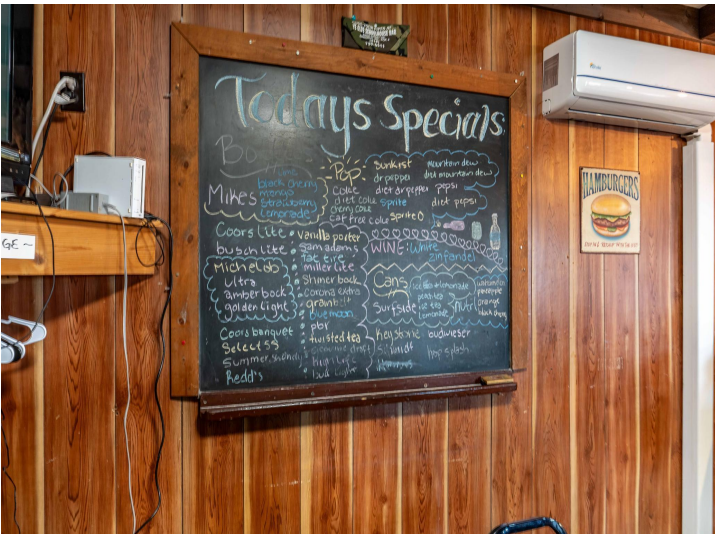 Todays Specials
Bo
Mikes
lime
black cherry
mango
strawberry
lemonade
Pop:
Coke
diet coke
cherry coke
caf free coke
Sunkist
dr pepper
diet dr pepper
sprite
sprite 0
mountain dew
diet mountain dew
pepsi
diet pepsi
Coors lite
busch lite
Michelob
Ultra
amber bock
golden light
Coors banquet
Select 55
Summer shandy
Redd's
vanilla porter
Sam adams
fat tire
miller lite
Shiner bock
corona extra
grain
blue moon
pbr
twisted tea
genuine draft
high life
bud light
WINE: White
zinfandel
Cans
Surfside
iced tea + lemonade
peach tea
ice tea
lemonade
Nutrl
watermelon
pineapple
orange
black cherry
Keystone
budwieser
hop splash
HAMBURGERS
GE ~